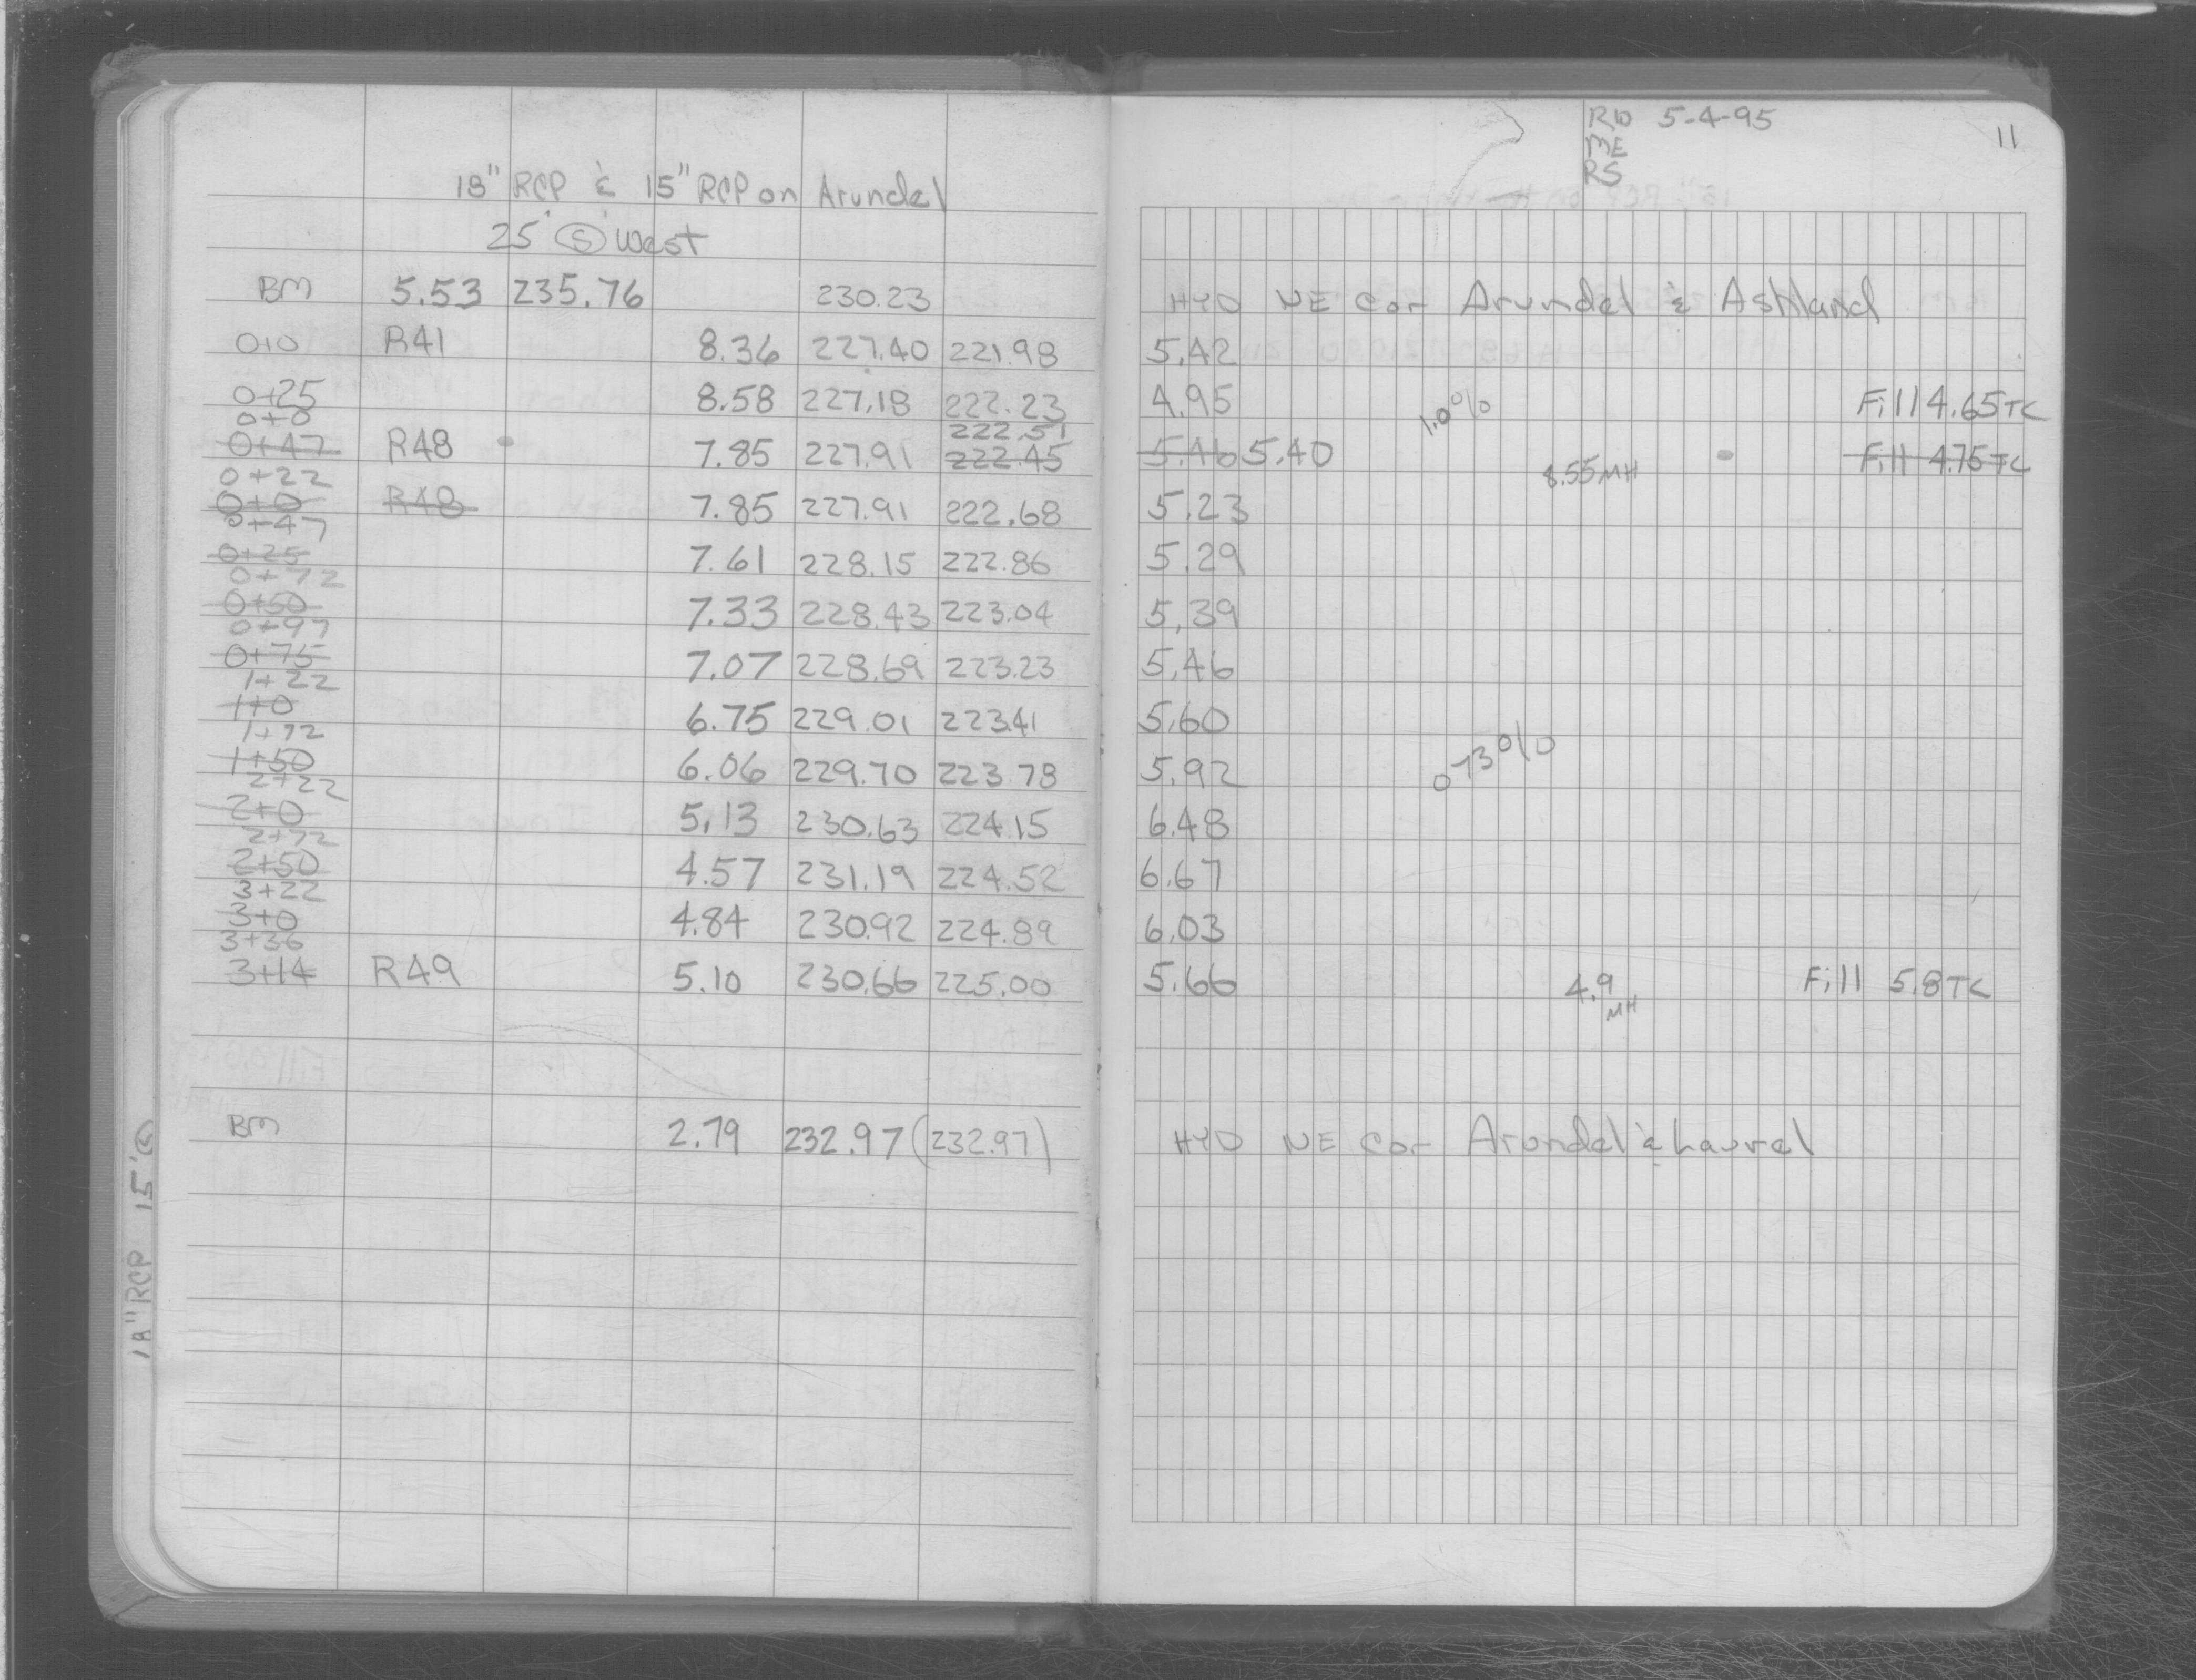 18" RCP & 15" RCP on Arundel
25' Ⓢ West
BM 5.53 235.76 230.23
0+0 R41 8.36 227.40 221.98
0+25 8.58 227.18 222.23
0+0 222.51
0+47 R48 7.85 227.91 222.45
0+22
0+0 R48 7.85 227.91 222.68
0+47
0+25 7.61 228.15 222.86
0+72
0+50 7.33 228.43 223.04
0+97
0+75 7.07 228.69 223.23
1+22
1+0 6.75 229.01 223.41
1+72
1+50 6.06 229.70 223.78
2+22
2+0 5.13 230.63 224.15
2+72
2+50 4.57 231.19 224.52
3+22
3+0 4.84 230.92 224.89
3+36
3+14 R49 5.10 230.66 225.00
BM 2.79 232.97 (232.97)
18" RCP 15'
RW 5-4-95
ME
RS
11
HYD NE Cor Arundel & Ashland
5.42
4.95 1.0% Fill 4.65 TC
5.46 5.40 8.55 MH Fill 4.75 TC
5.23
5.29
5.39
5.46
5.60
5.92 0.73%
6.48
6.67
6.03
5.66 4.9 MH Fill 5.8 TC
HYD NE Cor Arundel & Laurel